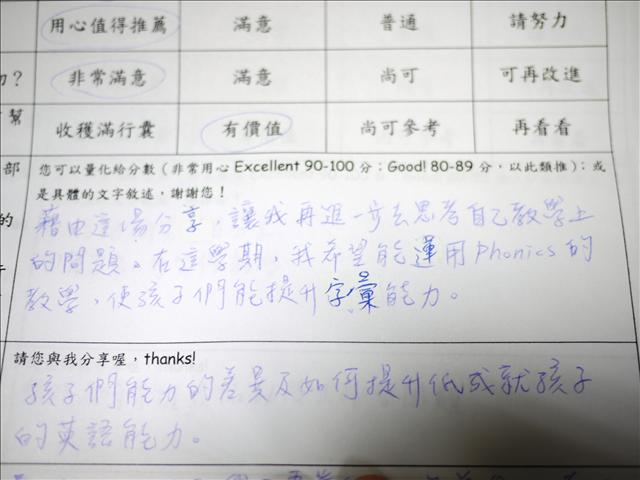 用心值得推薦 滿意 普通 請努力
？ 非常滿意 滿意 尚可 可再改進
幫 收穫滿行囊 有價值 尚可參考 再看看
部 您可以量化給分數（非常用心 Excellent 90-100 分；Good! 80-89 分，以此類推）；或
是具體的文字敘述，謝謝您！
的 藉由這場分享，讓我再進一步去思考自己教學上
的問題。在這學期，我希望能運用 Phonics 的
教學，使孩子們能提升字彙能力。
請您與我分享喔，thanks!
孩子們能力的差異及如何提升低成就孩子
的英語能力。